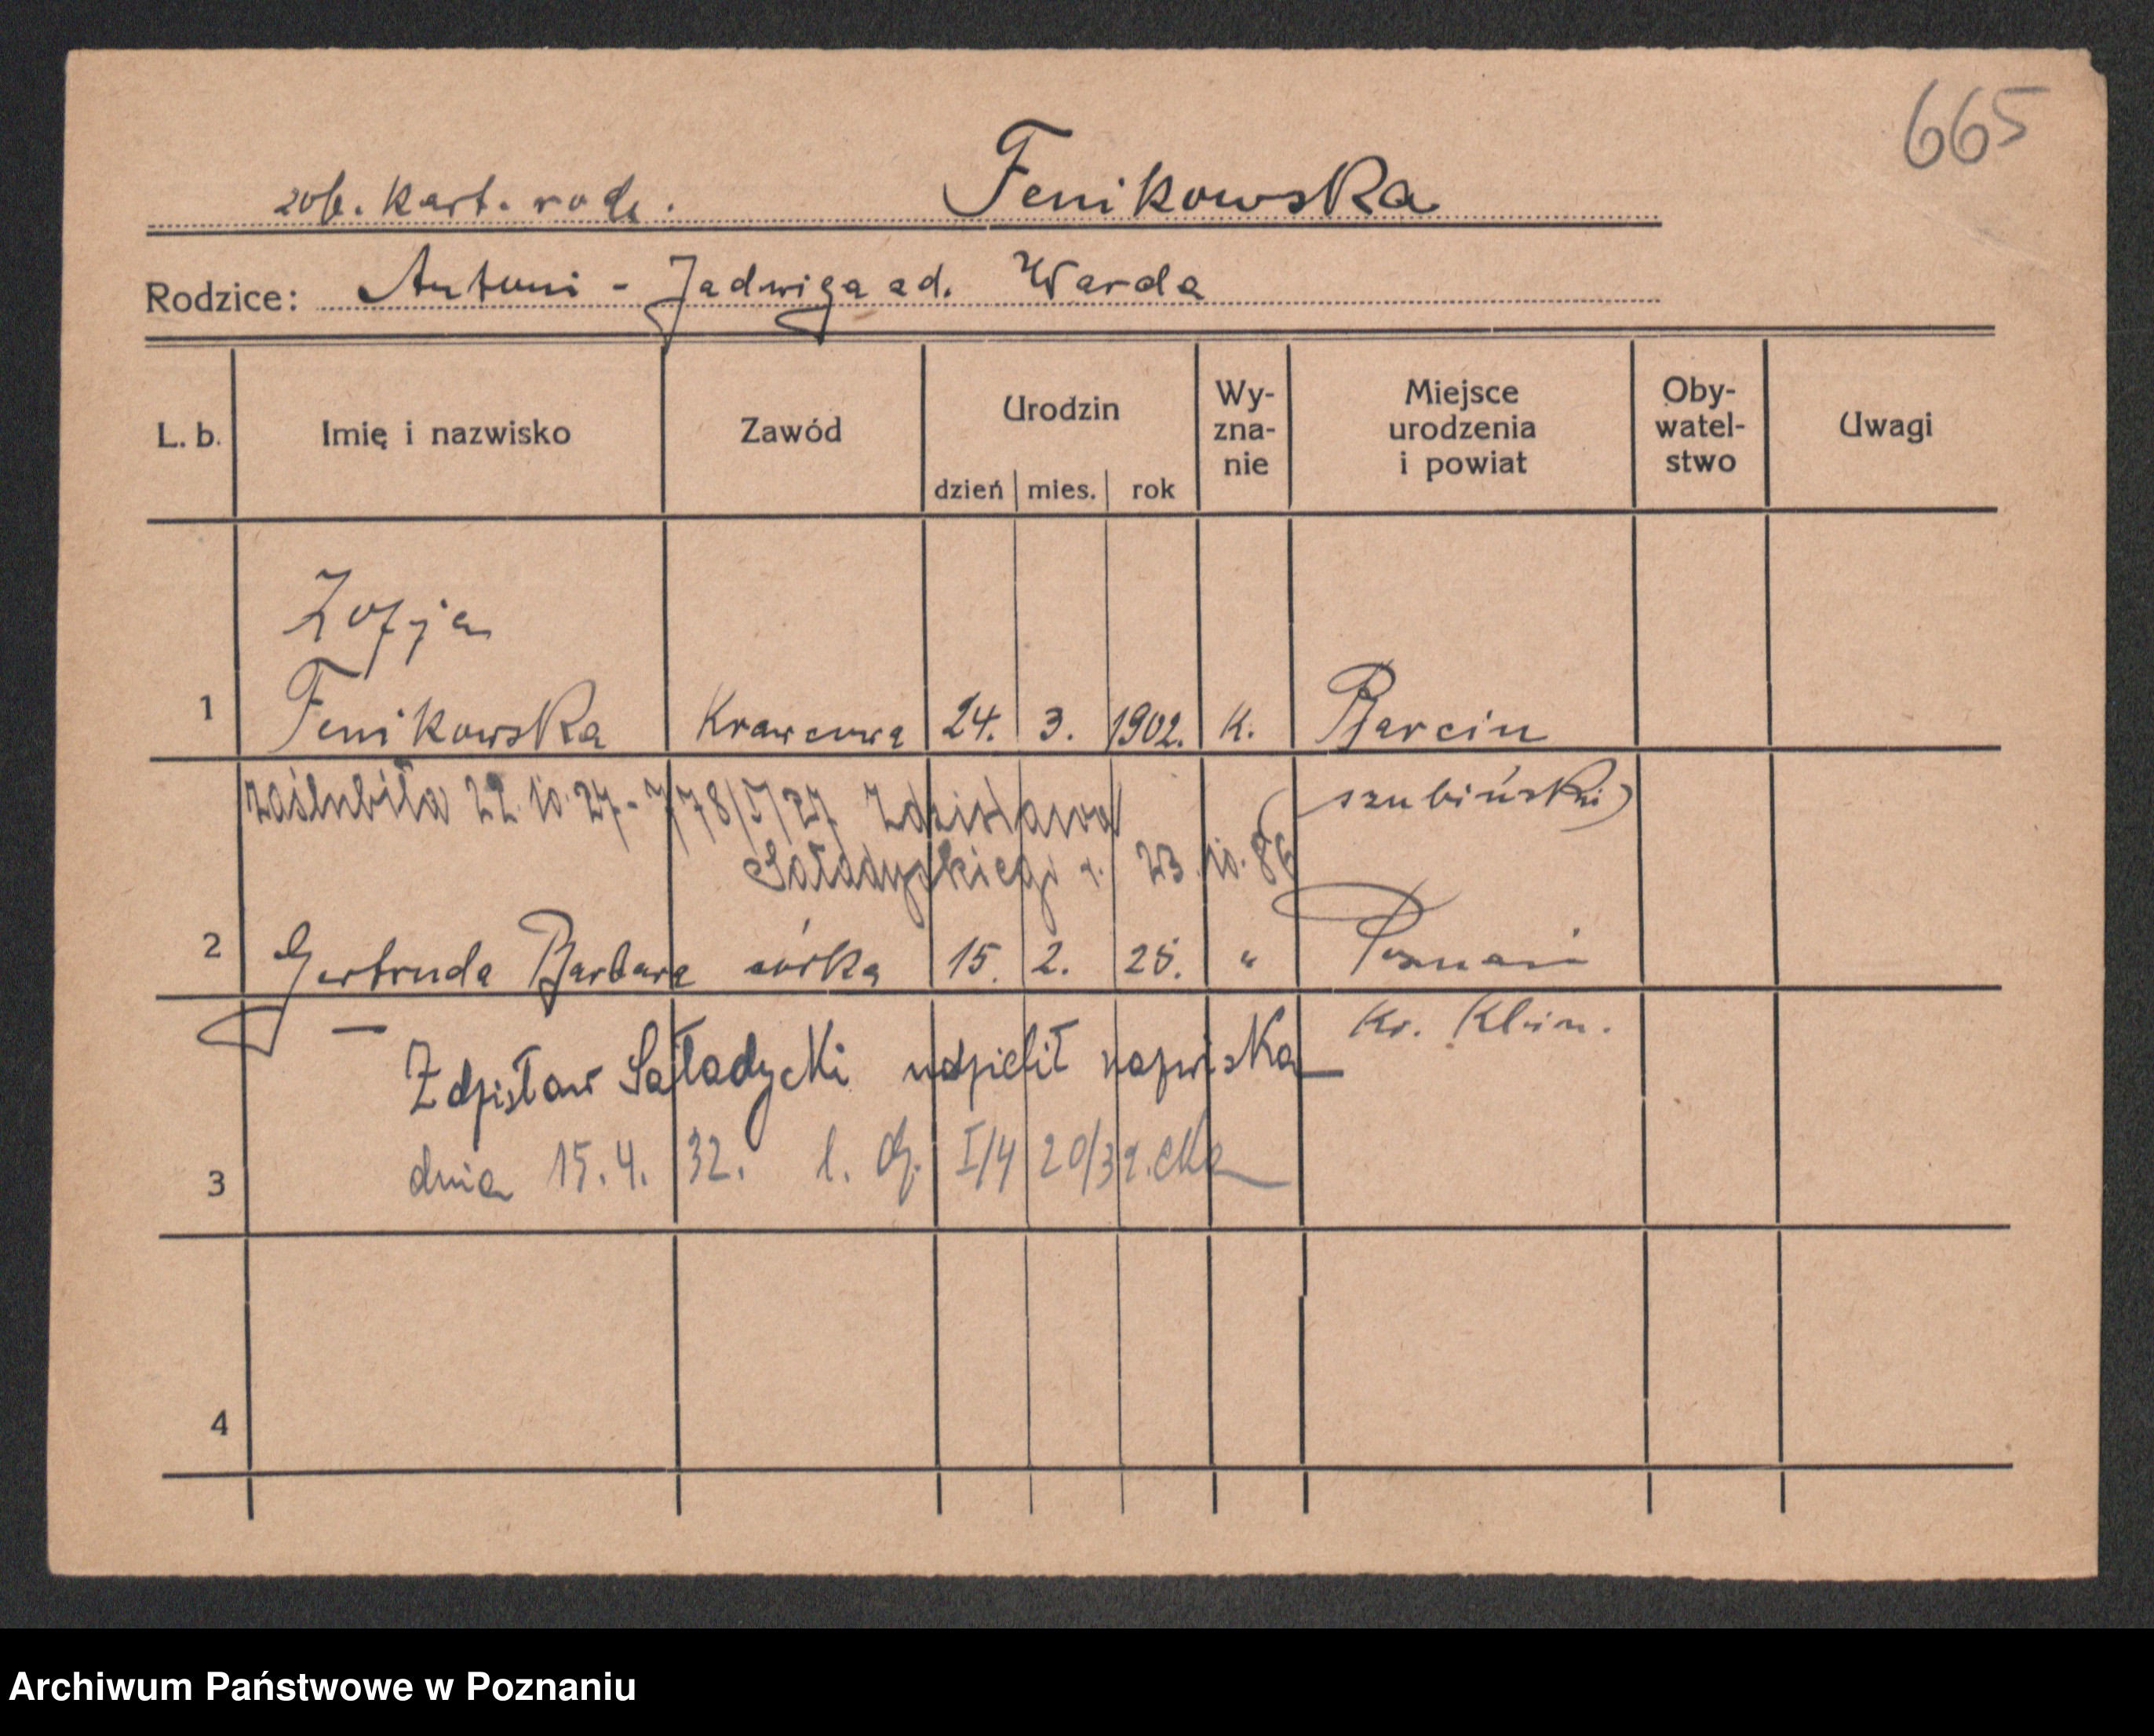 665
zob. Kart. rodz. Fenikowska
Rodzice: Antoni - Jadwiga ad. Warda
L. b. Imię i nazwisko Zawód Urodzin dzień mies. rok Wy-zna-nie Miejsce urodzenia i powiat Oby-watel-stwo Uwagi
Zofja
1 Fenikowska Krawcowa 24. 3. 1902. K. Barcin
(szubiński)
zaślubiła 22.10.27 - 778/I/27 Zdzisława
Saładyckiego r. 23.10.86
2 Gertruda Barbara córka 15. 2. 25. " Poznań
Zdzisław Saładycki udzielił nazwiska
3 dnia 15.4.32. l. dz. I/4 20/32.
4
Archiwum Państwowe w Poznaniu